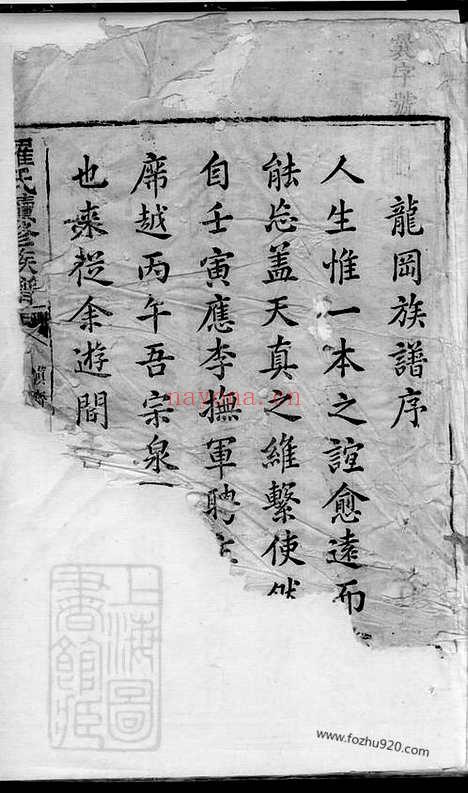 龍岡族譜序
人生惟一本之誼愈遠而
能忘盖天真之維繫使然
自壬寅應李撫軍聘主
席越丙午吾宗泉
也来從余遊間
羅氏續修族譜
上海圖書館藏
nayona.cn
www.fozhu920.com